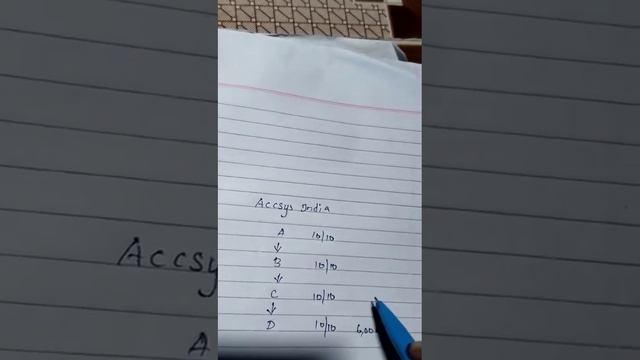 Accsys India
A 10/10
↓
B 10/10
↓
C 10/10
↓
D 10/10
Accsys
A